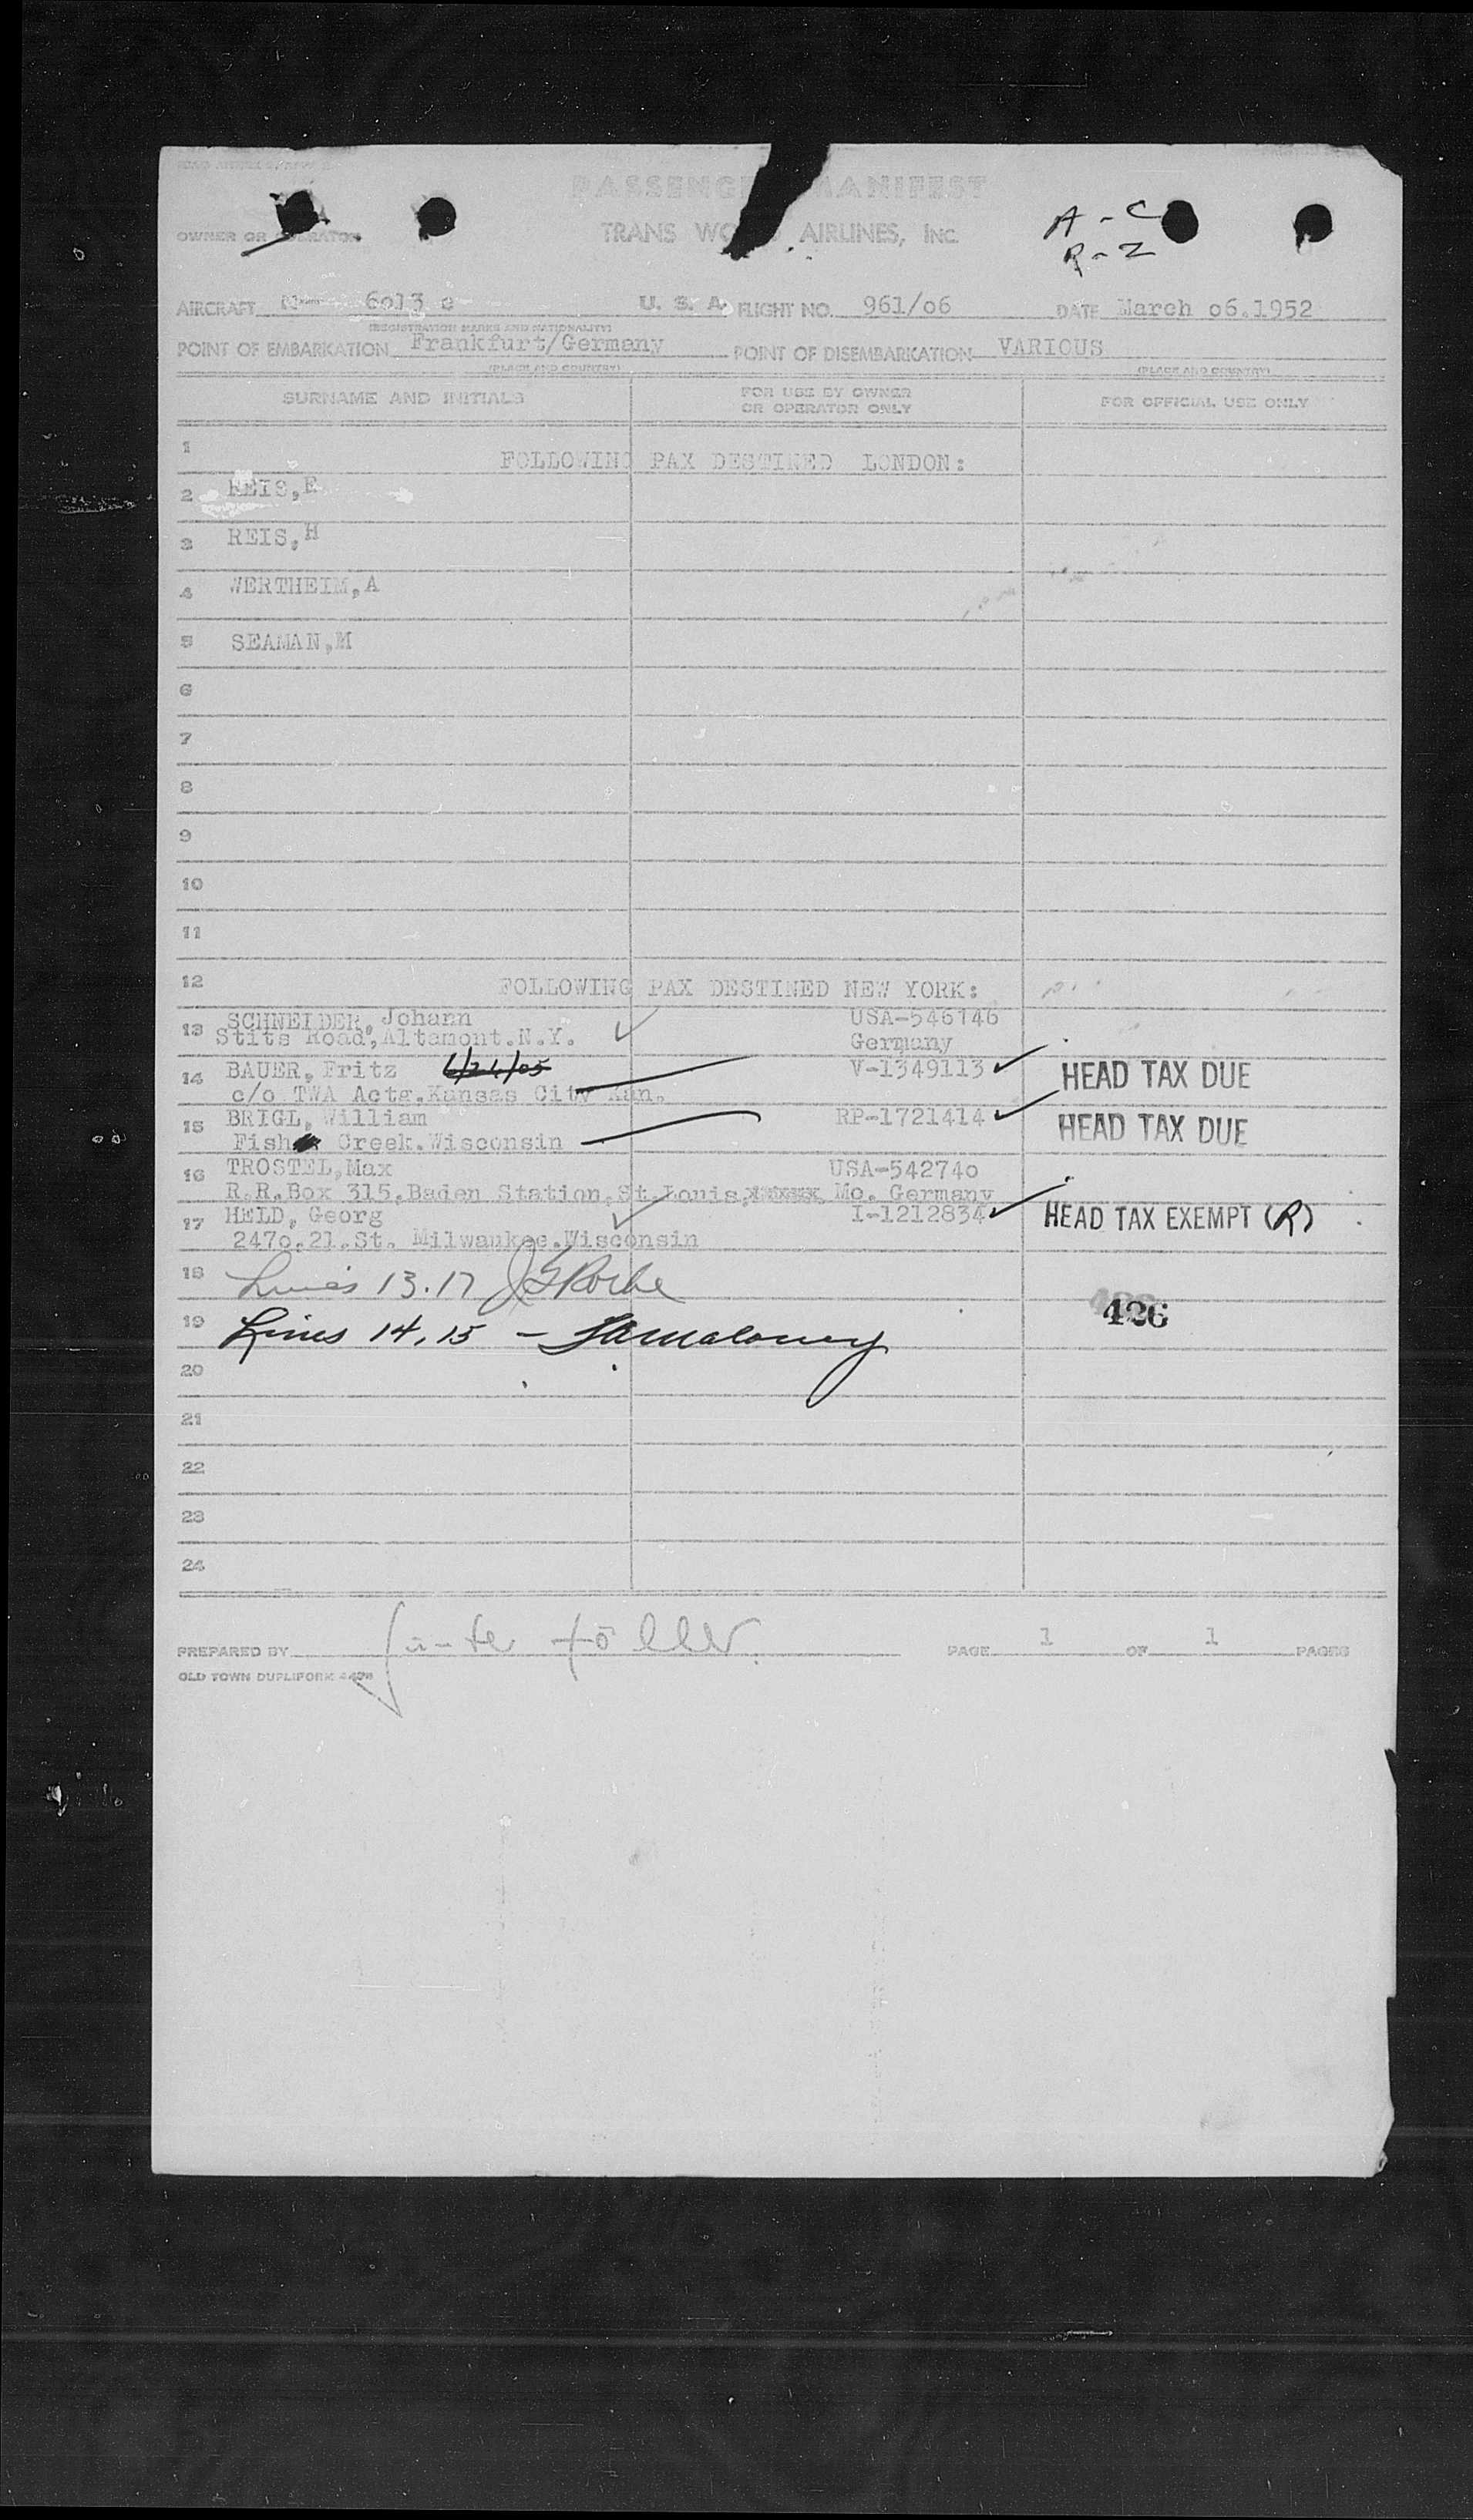 PASSENGE MANIFEST
OWNER OR OPERATOR
TRANS WO AIRLINES, INC.
A - C
R - Z
AIRCRAFT N 6013 c U. S. A. FLIGHT NO. 961/o6 DATE March o6.1952
(REGISTRATION MARKS AND NATIONALITY)
POINT OF EMBARKATION Frankfurt/Germany POINT OF DISEMBARKATION VARIOUS
(PLACE AND COUNTRY) (PLACE AND COUNTRY)
SURNAME AND INITIALS FOR USE BY OWNER OR OPERATOR ONLY FOR OFFICIAL USE ONLY
1 FOLLOWING PAX DESTINED LONDON:
2 REIS,E
3 REIS,H
4 WERTHEIM,A
5 SEAMAN,M
6
7
8
9
10
11
12 FOLLOWING PAX DESTINED NEW YORK:
13 SCHNEIDER, Johann USA-546146
Stits Road,Altamont.N.Y. Germany
14 BAUER, Fritz 6/24/05 V-1349113 HEAD TAX DUE
c/o TWA Actg.Kansas City Kan.
15 BRIGL, William RP-1721414 HEAD TAX DUE
Fish Creek.Wisconsin
16 TROSTEL,Max USA-54274o
R.R.Box 315,Baden Station,St.Louis, Mo. Germany
17 HELD, Georg I-1212834 HEAD TAX EXEMPT (R)
247o.21.St. Milwaukee.Wisconsin
18 Lines 13.17
19 Lines 14, 15 - Maloney 426
20
21
22
23
24
PREPARED BY PAGE 1 OF 1 PAGES
OLD TOWN DUPLIFORM